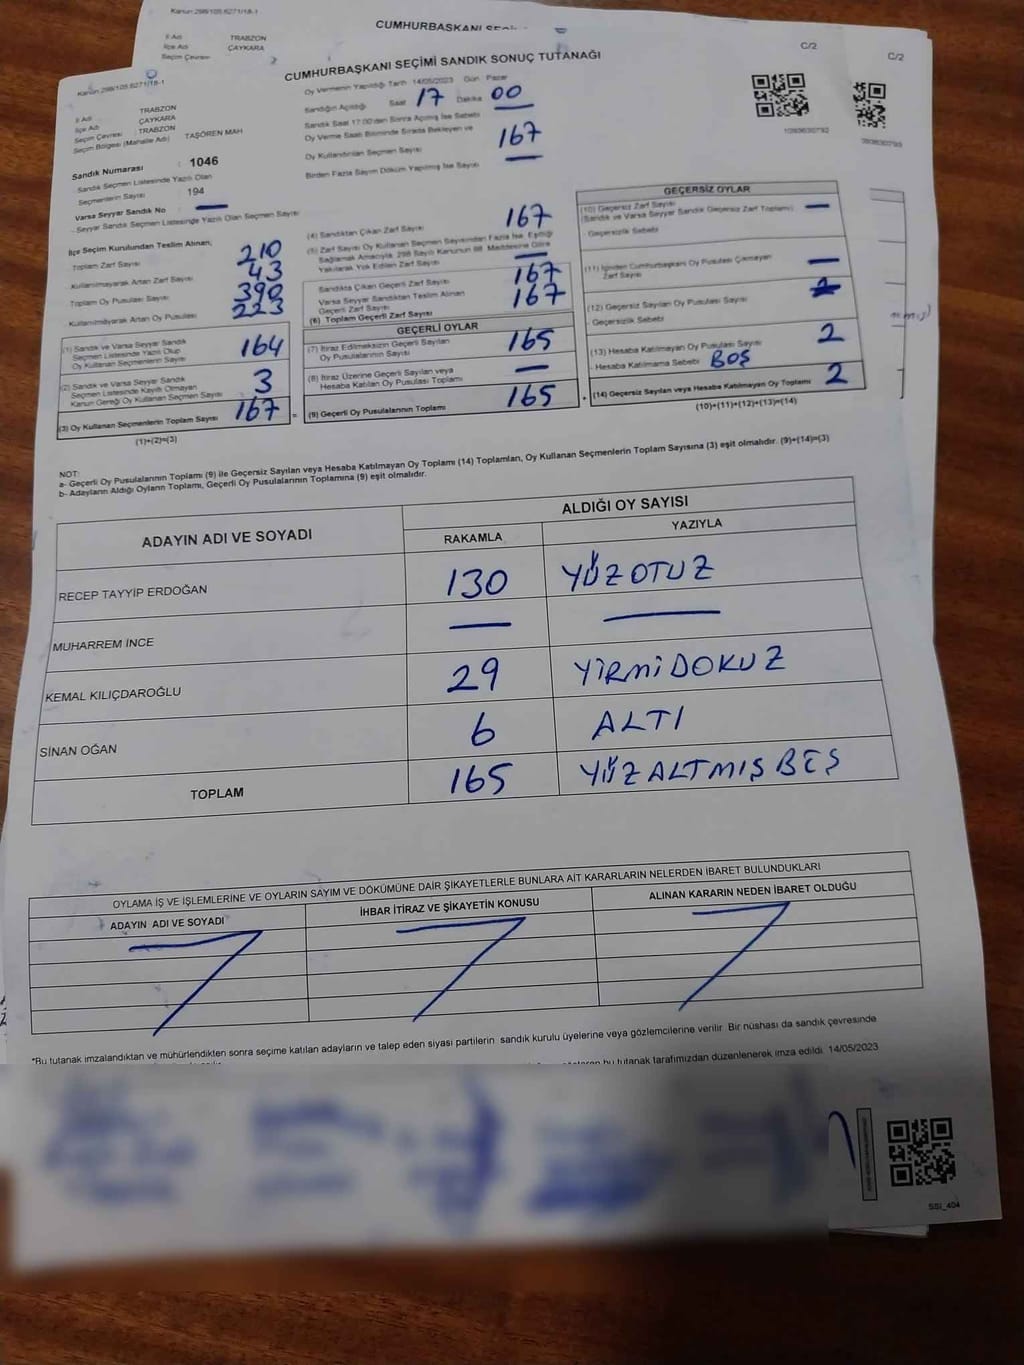 Kanun:298/105.6271/18-1
CUMHURBAŞKANI
İl Adı TRABZON
İlçe Adı ÇAYKARA
Seçim Çevresi
C/2
Kanun:298/105.6271/18-1
CUMHURBAŞKANI SEÇİMİ SANDIK SONUÇ TUTANAĞI
C/2
İl Adı TRABZON
İlçe Adı ÇAYKARA
Seçim Çevresi TRABZON
Seçim Bölgesi (Mahalle Adı) TAŞÖREN MAH
Sandık Numarası : 1046
Sandık Seçmen Listesinde Yazılı Olan
Seçmenlerin Sayısı : 194
Varsa Seyyar Sandık No —
- Seyyar Sandık Seçmen Listesinde Yazılı Olan Seçmen Sayısı
Oy Vermenin Yapıldığı Tarih 14/05/2023 Gün Pazar
Sandığın Açıldığı Saat 17 Dakika 00
Sandık Saat 17:00'den Sonra Açılmış İse Sebebi —
Oy Verme Saati Bitiminde Sırada Bekleyen ve
Oy Kullandırılan Seçmen Sayısı 167
Birden Fazla Sayım Döküm Yapılmış İse Sayısı —
1093630792
İlçe Seçim Kurulundan Teslim Alınan;
Toplam Zarf Sayısı 210
- Kullanılmayarak Artan Zarf Sayısı 43
Toplam Oy Pusulası Sayısı 390
- Kullanılmayarak Artan Oy Pusulası 223
(1) Sandık ve Varsa Seyyar Sandık
Seçmen Listesinde Yazılı Olup
Oy Kullanan Seçmenlerin Sayısı 164
(2) Sandık ve Varsa Seyyar Sandık
Seçmen Listesinde Kayıtlı Olmayan
Kanun Gereği Oy Kullanan Seçmen Sayısı 3
(3) Oy Kullanan Seçmenlerin Toplam Sayısı 167 =
(1)+(2)=(3)
(4) Sandıktan Çıkan Zarf Sayısı 167
(5) Zarf Sayısı Oy Kullanan Seçmen Sayısından Fazla İse, Eşitliği
Sağlamak Amacıyla, 298 Sayılı Kanunun 98. Maddesine Göre
Yakılarak Yok Edilen Zarf Sayısı —
Sandıkta Çıkan Geçerli Zarf Sayısı 167
Varsa Seyyar Sandıktan Teslim Alınan
Geçerli Zarf Sayısı 167
(6) Toplam Geçerli Zarf Sayısı
GEÇERLİ OYLAR
(7) İtiraz Edilmeksizin Geçerli Sayılan
Oy Pusulalarının Sayısı 165
(8) İtiraz Üzerine Geçerli Sayılan veya
Hesaba Katılan Oy Pusulası Toplamı —
(9) Geçerli Oy Pusulalarının Toplamı 165 +
GEÇERSİZ OYLAR
(10) Geçersiz Zarf Sayısı
(Sandık ve Varsa Seyyar Sandık Geçersiz Zarf Toplamı) —
- Geçersizlik Sebebi
(11) İçinden Cumhurbaşkanı Oy Pusulası Çıkmayan
Zarf Sayısı —
(12) Geçersiz Sayılan Oy Pusulası Sayısı
- Geçersizlik Sebebi
(13) Hesaba Katılmayan Oy Pusulası Sayısı 2
- Hesaba Katılmama Sebebi BOŞ
(14) Geçersiz Sayılan veya Hesaba Katılmayan Oy Toplamı 2
(10)+(11)+(12)+(13)=(14)
NOT:
a- Geçerli Oy Pusulalarının Toplamı (9) ile Geçersiz Sayılan veya Hesaba Katılmayan Oy Toplamı (14) Toplamları, Oy Kullanan Seçmenlerin Toplam Sayısına (3) eşit olmalıdır. (9)+(14)=(3)
b- Adayların Aldığı Oyların Toplamı, Geçerli Oy Pusulalarının Toplamına (9) eşit olmalıdır.
ADAYIN ADI VE SOYADI
ALDIĞI OY SAYISI
RAKAMLA YAZIYLA
RECEP TAYYİP ERDOĞAN 130 YÜZ OTUZ
MUHARREM İNCE — —
KEMAL KILIÇDAROĞLU 29 YİRMİ DOKUZ
SİNAN OĞAN 6 ALTI
TOPLAM 165 YÜZ ALTMIŞ BEŞ
OYLAMA İŞ VE İŞLEMLERİNE VE OYLARIN SAYIM VE DÖKÜMÜNE DAİR ŞİKAYETLERLE BUNLARA AİT KARARLARIN NELERDEN İBARET BULUNDUKLARI
ADAYIN ADI VE SOYADI İHBAR İTİRAZ VE ŞİKAYETİN KONUSU ALINAN KARARIN NEDEN İBARET OLDUĞU
*Bu tutanak imzalandıktan ve mühürlendikten sonra seçime katılan adayların ve talep eden siyasi partilerin sandık kurulu üyelerine veya gözlemcilerine verilir. Bir nüshası da sandık çevresinde
bu tutanak tarafımızdan düzenlenerek imza edildi. 14/05/2023
SSI_404